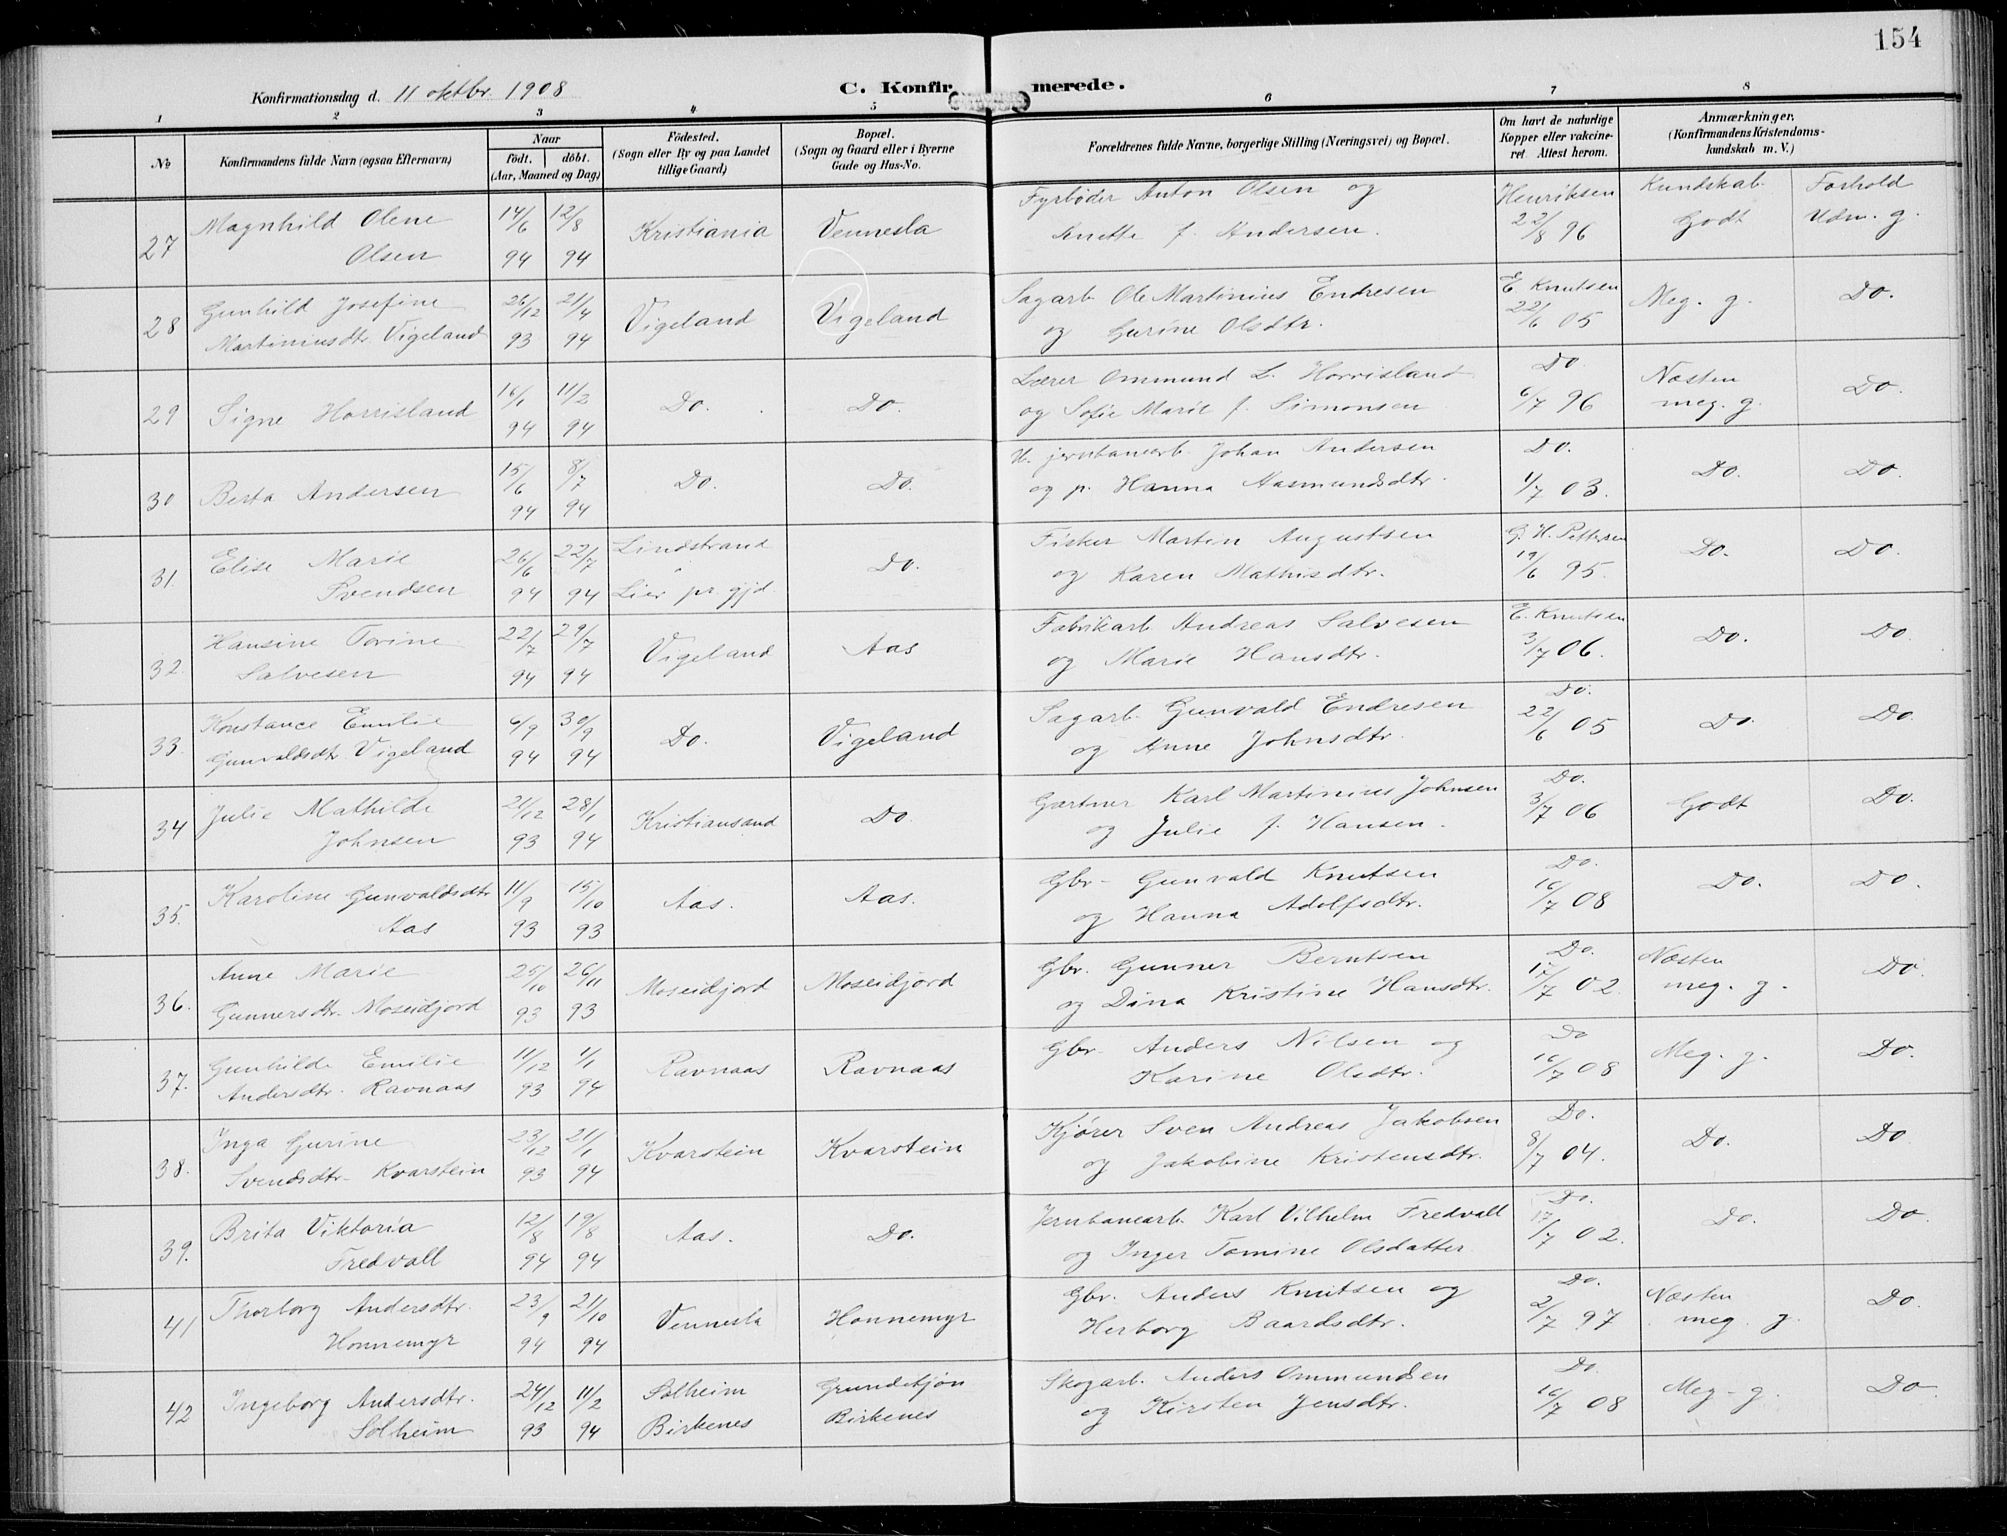 154
Konfirmationsdag d. 11 oktbr. 1908
C. Konfirmerede.
1 2 3 4 5 6 7 8
No
Konfirmandens fulde Navn (ogsaa Efternavn)
Naar
født. døbt.
(Aar, Maaned og Dag)
Fødested.
(Sogn eller By og paa Landet
tillige Gaard)
Bopæl.
(Sogn og Gaard eller i Byerne
Gade og Hus-No.
Forældrenes fulde Navne, borgerlige Stilling (Næringsvei) og Bopæl.
Om havt de naturlige
Kopper eller vakcine-
ret. Attest herom.
Anmærkninger.
(Konfirmandens Kristendoms-
kundskab m. V.)
27 Magnhild Olene Olsen 14/6 94 12/8 94 Kristiania Vennesla Fyrbøder Anton Olsen og
Anette f. Andersen. Henriksen 22/8 96 Kundskab Godt Forhold Udm. g.
28 Gunhild Josefine
Martiniusdtr. Vigeland 26/12 93 21/4 94 Vigeland Vigeland Sagarb. Ole Martinius Endresen
og Gurine Olsdtr. E Knutsen 22/6 05 Meg. g. Do.
29 Signe Horrisland 16/1 94 11/3 94 Do. Do. Lærer Ommund L. Horrisland
og Sofie Marie f. Simonsen 	Do 6/7 96 Næsten meg. g. Do.
30 Berta Andersen 15/6 94 8/7 94 Do. Do. U. jernbanearb. Johan Andersen
og p. Hanna Aasmundsdtr. Do. 1/7 03. Do. Do
31. Elise Marie
Svendsen 26/6 94 22/7 94 Lindstrand
Lier pr. gjd. Do. Fisker Martin Augustsen
og Karen Mathisdtr. G. H. Pettersen 19/6 95. Do. Do.
32. Hansine Torine
Salvesen 22/7 94 29/7 94 Vigeland Aas Fabrikarb. Andreas Salvesen
og Marie Hansdtr. E. Knutsen 3/7 06. Do. Do.
33. Konstance Emilie
Gunvaldsdtr. Vigeland 6/9 94 30/9 94 Do. Vigeland Sagarb. Gunvald Endresen
og Anne Johnsdtr. Do. 22/6 05 Do. Do.
34 Julie Mathilde
Johnsen 21/12 93 28/1 94 Kristiansand Do. Gartner Karl Martinius Johnsen
og Julie f. Hansen. Do. 3/7 06 Godt Do.
35. Karoline Gunvaldsdtr
Aas 11/9 93 15/10 93 Aas. Aas. Gbr. Gunvald Knutsen
og Hanna Adolfsdtr. Do. 16/7 08 Do. Do.
36. Anne Marie
Gunnersdtr. Moseidjord 25/10 93 26/11 93 Moseidjord Moseidjord Gbr. Gunner Berntsen
og Dina Kristine Hansdtr. Do. 17/7 02. Næsten meg. g. Do.
37. Gunhilde Emilie
Andersdtr. Ravnaas 11/12 93 1/1 94 Ravnaas Ravnaas Gbr. Anders Nilsen og
Karine Olsdtr. Do 16/7 08 Meg. g. Do.
38. Inga Gurine
Svendsdtr. Kvarstein 23/12 93 21/1 94 Kvarstein Kvarstein Kjører Sven Andreas Jakobsen
og Jakobine Kristensdtr. Do. 8/7 04. Do. Do
39. Brita Viktoria
Fredvall 12/8 94 19/8 94 Aas. Do. Jernbanearb. Karl Vilhelm Fredvall
og Inger Tomine Olsdatter Do. 17/7 02. Do. Do
41 Thorborg Andersdtr.
Honnemyr 23/9 94 21/10 94 Vennesla Honnemyr Gbr. Anders Knutsen og
Herborg Baardsdtr. Do. 2/7 97 Næsten meg. g. Do.
42 Ingeborg Andersdtr.
Solheim 24/12 93 11/2 94 Solheim
Birkenes Grundetjøn
Birkenes Skogarb. Anders Ommundsen
og Kirsten Jensdtr. Do 16/7 08 Meg. g. Do